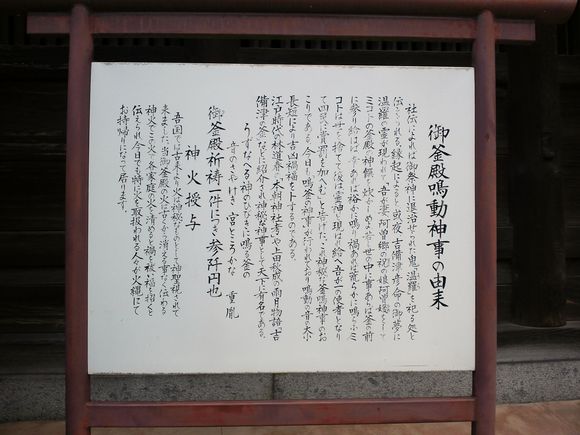 御釜殿鳴動神事の由来
社伝によれば御祭神に退治せられた鬼「温羅」を祀る処と
伝えられる。縁起によると、或夜 吉備津彦命の御夢に
温羅の霊が現われて「吾が妻 阿曽郷の祝の娘阿曽媛をして
ミコトの釜殿の神饌を炊かしめよ。若し世の中に事あらば釜の前
に参り給はば幸あらば裕かに鳴り禍あれば荒らかに鳴らふミ
コトは世を捨てて後は霊神と現われ給へ吾が一の使者となり
て四民に賞罰を加へむ」と告げた。これ神秘な釜鳴神事のお
こりである。今日も鳴釜の神事が行われており鳴動の音の大小
長短により吉凶禍福を卜するのである。
江戸時代の林道春の「本朝神社考」や上田秋成の「雨月物語」「吉
備津の釜」などに紹介され神秘な神事として天下に有名である。
うすなへる神のひびきに鳴る釜の
音のさやけき宮ところかな 重胤
御釜殿祈祷一件につき参阡円也
神火授与
吾国では古来より火は神秘なものとして神聖視されて
来ました。当御釜殿の火は古から消える事なく伝わる
神火でこの火で各家庭の火を清めると禍を祓い福を招くと
伝えられ今日でも特に火を取扱われる人々が火縄にて
お持帰りになって居ります。